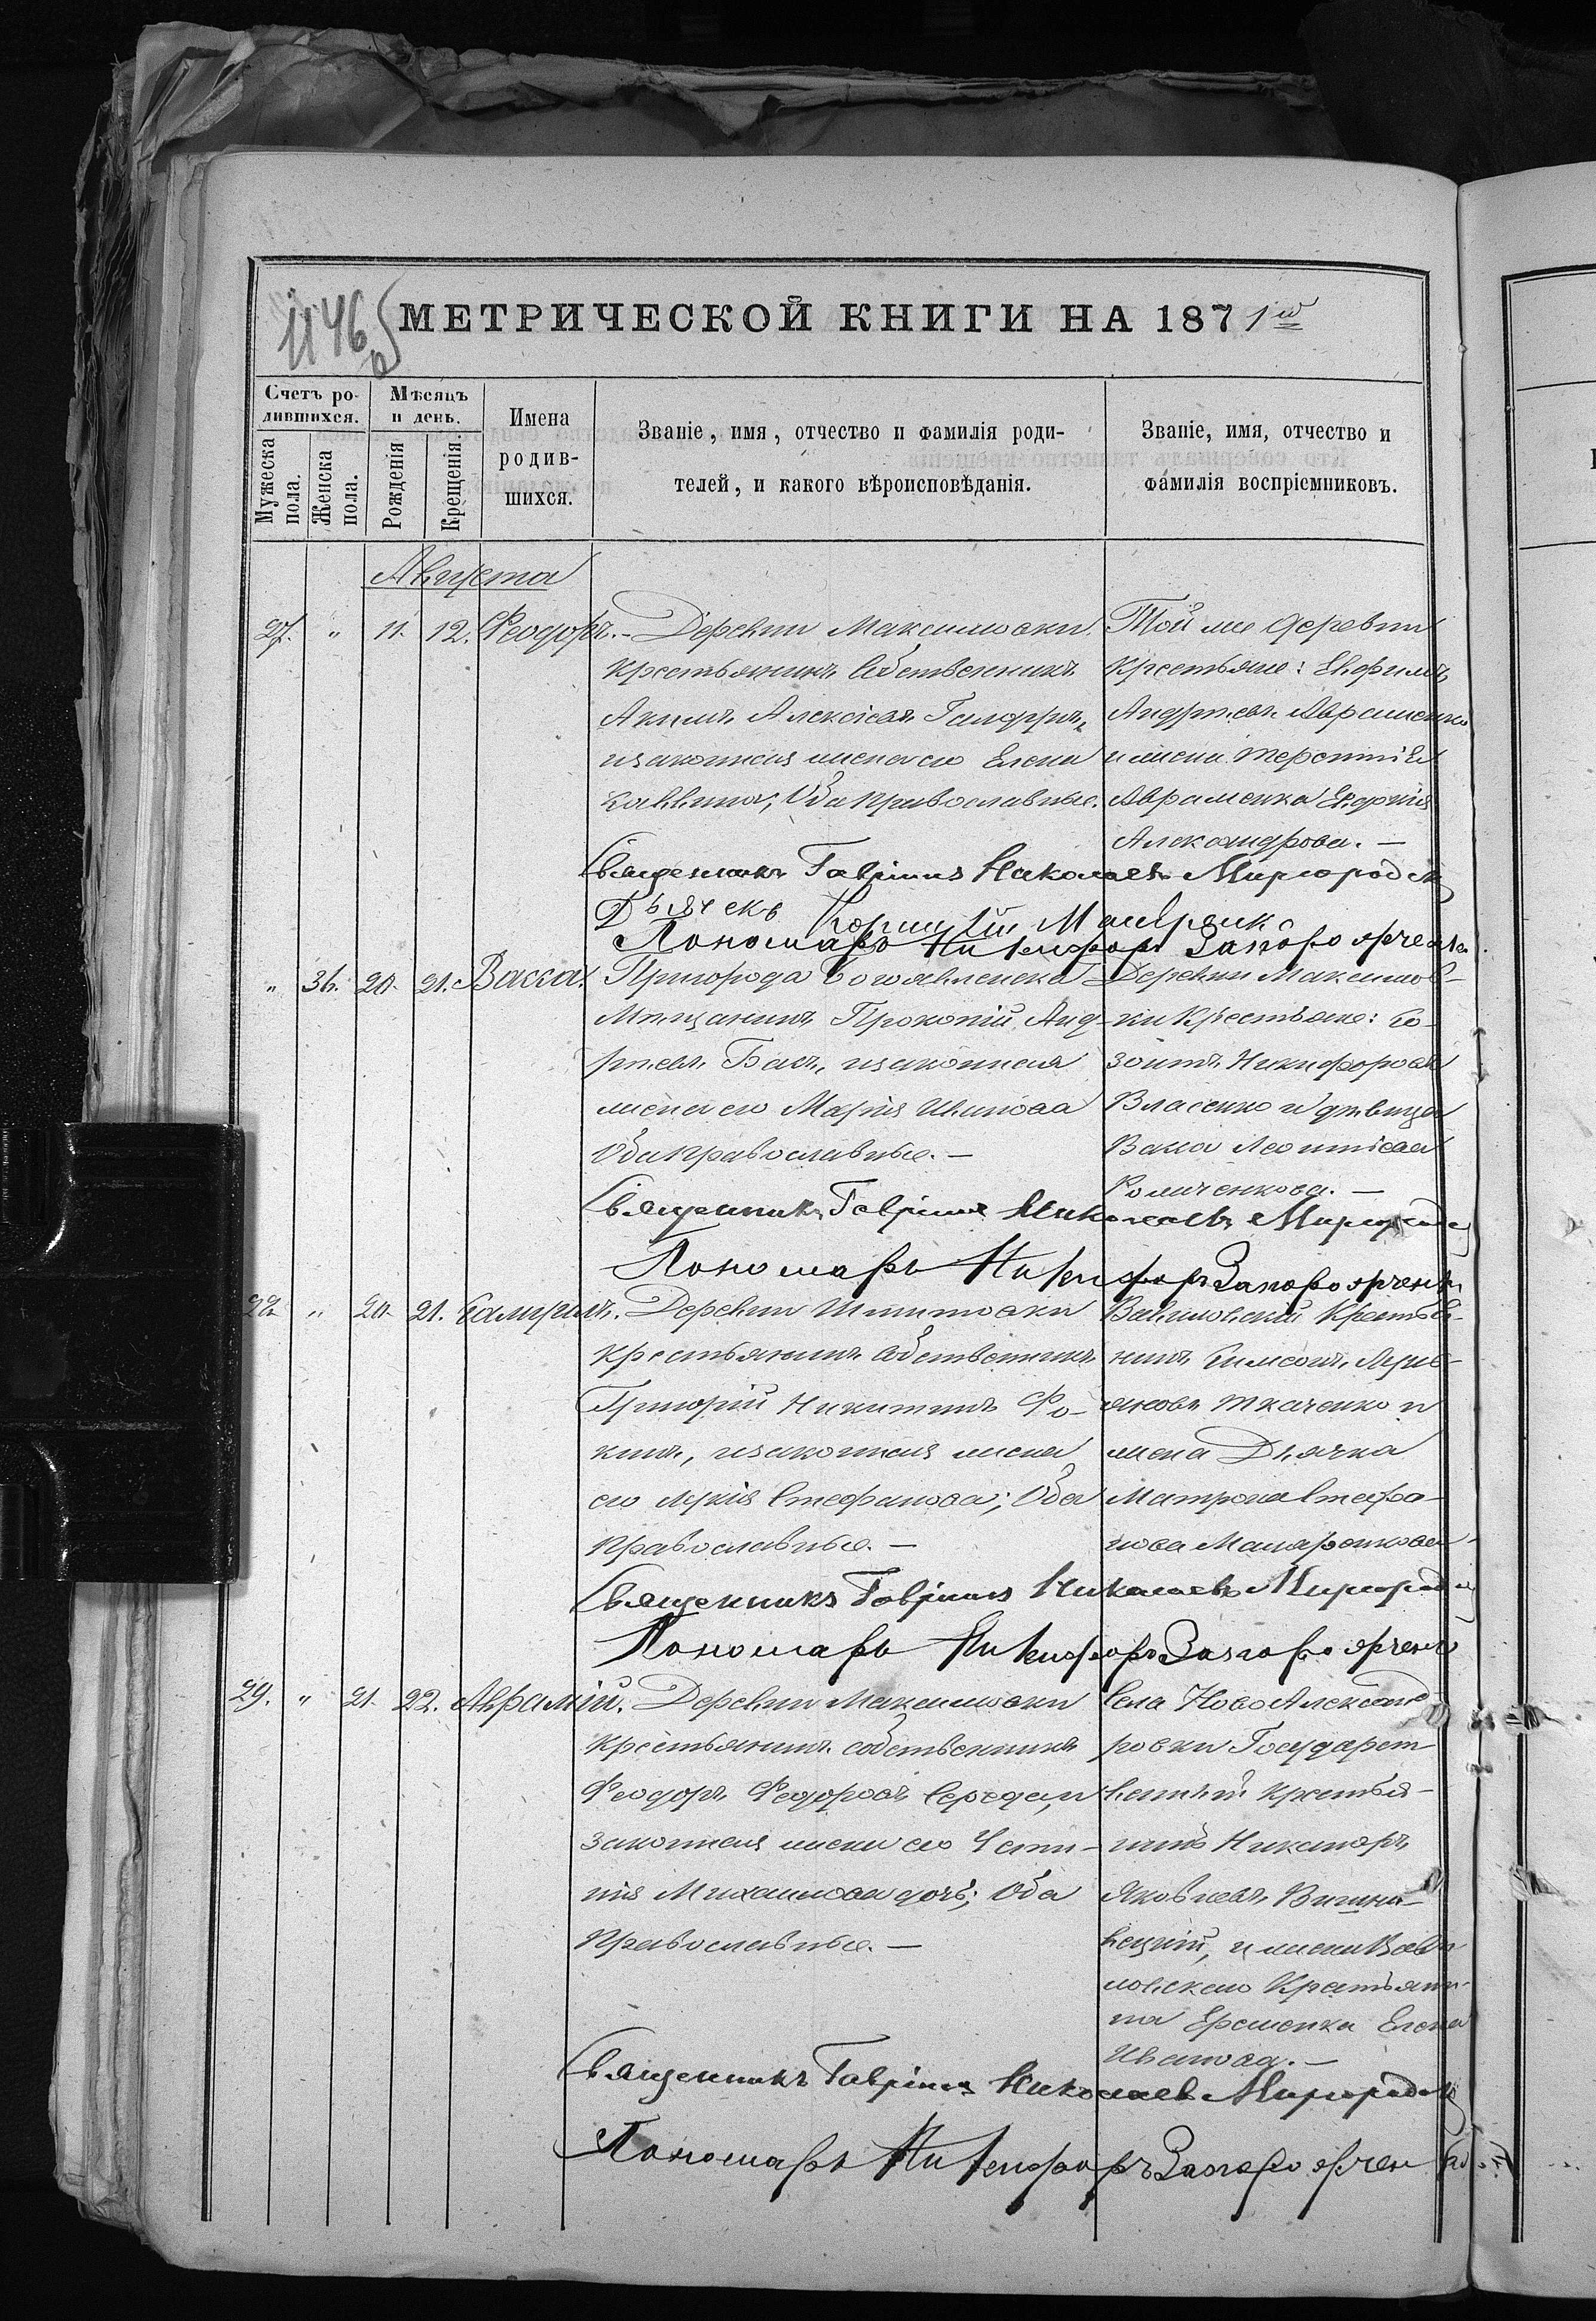 1146 об
МЕТРИЧЕСКОЙ КНИГИ НА 1871й
Счетъ ро-
лившихся.
Мужеска
пола.
Женска
пола.
Мѣсяцъ
и день.
Рожденія
Крещенія
Имена
родив-
шихся.
Званіе, имя, отчество и фамилія роди-
телей, и какого вѣроисповѣданія.
Званіе, имя, отчество и
фамилія воспріемниковъ.
Августа
27. " 11. 12. Феодоръ.
Деревни Максимовки
крестьянинъ собственникъ
Акимъ Алексіевъ
изаконная жена его Елена
Саввина; Оба православные.
Той же деревни
крестьяне: Евфимъ
Андреевъ Авраменко
и жена Терентія
Авраменка Евдокія
Александрова. —
Священникъ Гавріилъ Николаевъ Миргородск
Дьячекъ
Пономарь Никифоръ Запорожченко
" 36. 20. 21. Васса.
Пригорода Богоявленска
Мѣщанинъ Прокопій Анд-
реевъ Бакъ, изаконная
жена его Марія Иванова
Оба православные. —
Деревни Максимов-
ки Крестьяне: Со-
зонтъ Никифоровъ
Власенко и дѣвица
Васса Леонтіева
Романенкова. —
Священникъ Гавріилъ Николаевъ Миргородск
Пономарь Никифоръ Запорожченко
28. " 20. 21. Самуилъ.
Деревни
крестьянинъ собственникъ
Григорій Никитинъ Фо-
кинъ, изаконная жена
его Лукія Стефанова; Оба
православные. —
Вавиловскій Крестья-
нинъ Симеонъ
Ткаченко и
жена Дьячка
Матрона Стефа-
нова
Священникъ Гавріилъ Николаевъ Миргородск
Пономарь Никифоръ Запорожченко
29. " 21. 22. Авраамій.
Деревни Максимовки
крестьянинъ собственникъ
Феодоръ Федоровъ Середа, и
законная жена его Ксе-
нія Михаилова дочь; Оба
Православные. —
Села НовоАлександ
ровки Государст
венный крестья-
нинъ Никаноръ
Яковлевъ Вишне-
вецкій, и жена Вави
ловскаго Крестьяни-
на Еременка Елена
Иванова. —
Священникъ Гавріилъ Николаевъ Миргородск
Пономарь Никифоръ Запорожченко